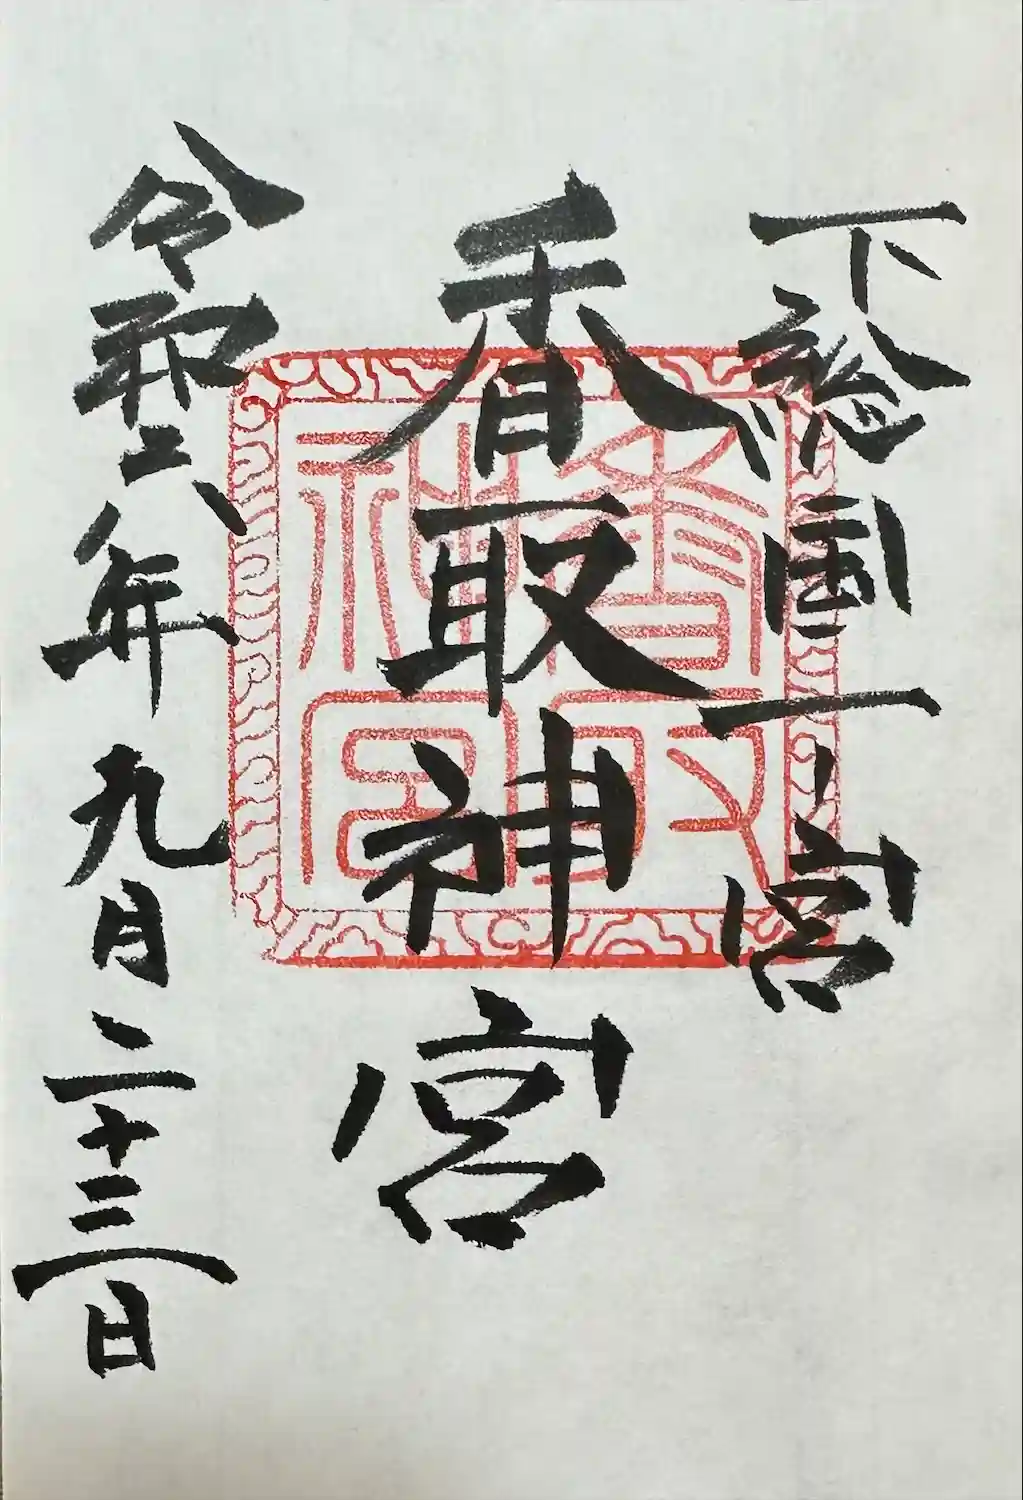 下総国一ノ宮
香取神宮
令和六年九月二十三日
香取
神宮